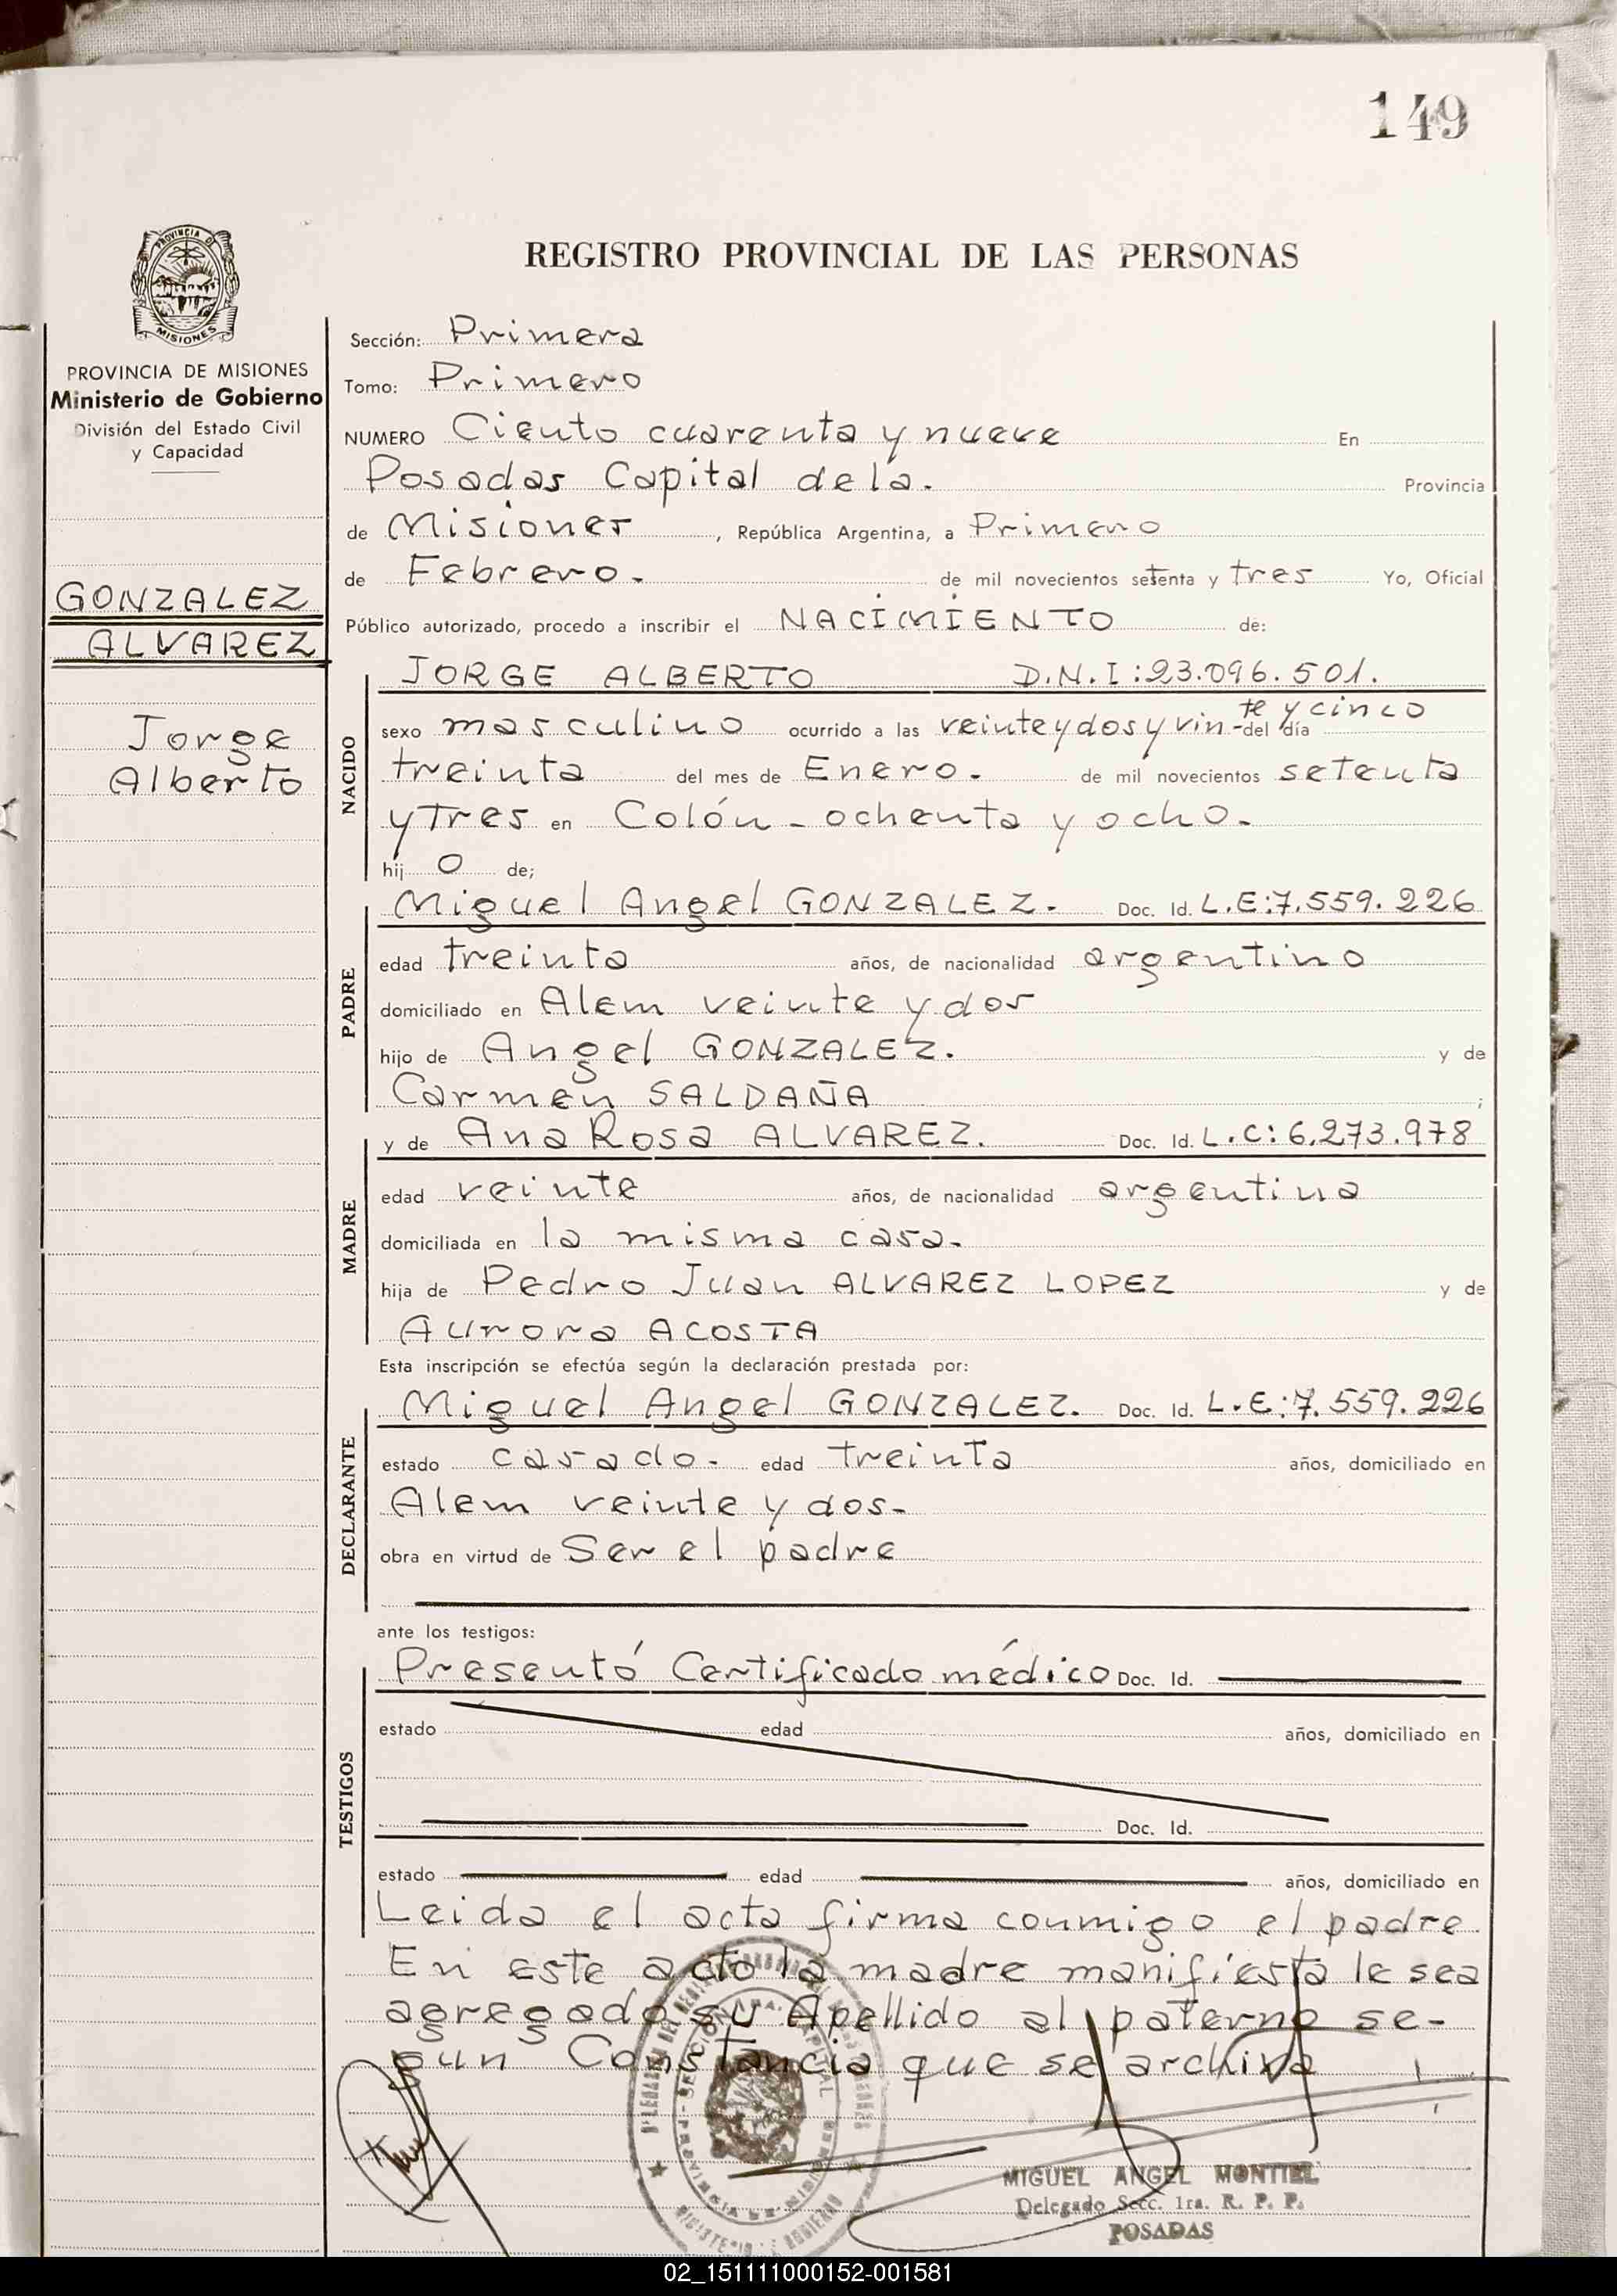 149
PROVINCIA DE
MISIONES
REGISTRO PROVINCIAL DE LAS PERSONAS
PROVINCIA DE MISIONES
Ministerio de Gobierno
División del Estado Civil
y Capacidad
GONZALEZ
ALVAREZ
Jorge
Alberto
Sección: Primera
Tomo: Primero
NUMERO Ciento cuarenta y nueve En
Posadas Capital dela. Provincia
de Misiones, República Argentina, a Primero
de Febrero. de mil novecientos setenta y tres Yo, Oficial
Público autorizado, procedo a inscribir el NACIMIENTO de:
NACIDO
JORGE ALBERTO D.N.I:23.096.501.
sexo masculino ocurrido a las veinteydosyvin-te y cinco del día
treinta del mes de Enero. de mil novecientos setenta
ytres en Colón - ochenta y ocho.
hij o de;
PADRE
Miguel Angel GONZALEZ. Doc. Id. L.E:7.559.226
edad treinta años, de nacionalidad argentino
domiciliado en Alem veinte y dos
hijo de Angel GONZALEZ. y de
Carmen SALDAÑA ;
MADRE
y de Ana Rosa ALVAREZ. Doc. Id. L.C: 6.273.978
edad veinte años, de nacionalidad argentina
domiciliada en la misma casa.
hija de Pedro Juan ALVAREZ LOPEZ y de
Aurora ACOSTA
Esta inscripción se efectúa según la declaración prestada por:
DECLARANTE
Miguel Angel GONZALEZ. Doc. Id. L.E:7.559.226
estado casado. edad treinta años, domiciliado en
Alem veinte y dos-
obra en virtud de Ser el padre
ante los testigos:
TESTIGOS
Presentó Certificado médico Doc. Id.
estado edad años, domiciliado en
Doc. Id.
estado edad años, domiciliado en
Leida el acta firma conmigo el padre
En este acto la madre manifiesta le sea
agregado su Apellido al paterno se-
gun Constancia que se archiva
SECCION 1RA. CAPITAL
PROVINCIA DE MISIONES
MINISTERIO DE GOBIERNO
MIGUEL ANGEL MONTIEL
Delegado Secc. 1ra. R. P. P.
POSADAS
02_151111000152-001581